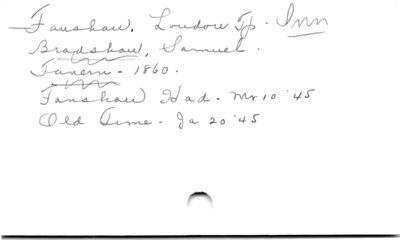 Fanshaw, London Tp. Inn
Bradshaw, Samuel.
Tavern - 1860.
Fanshaw Had. Mr 10 '45
Old Time. Ja 20 '45